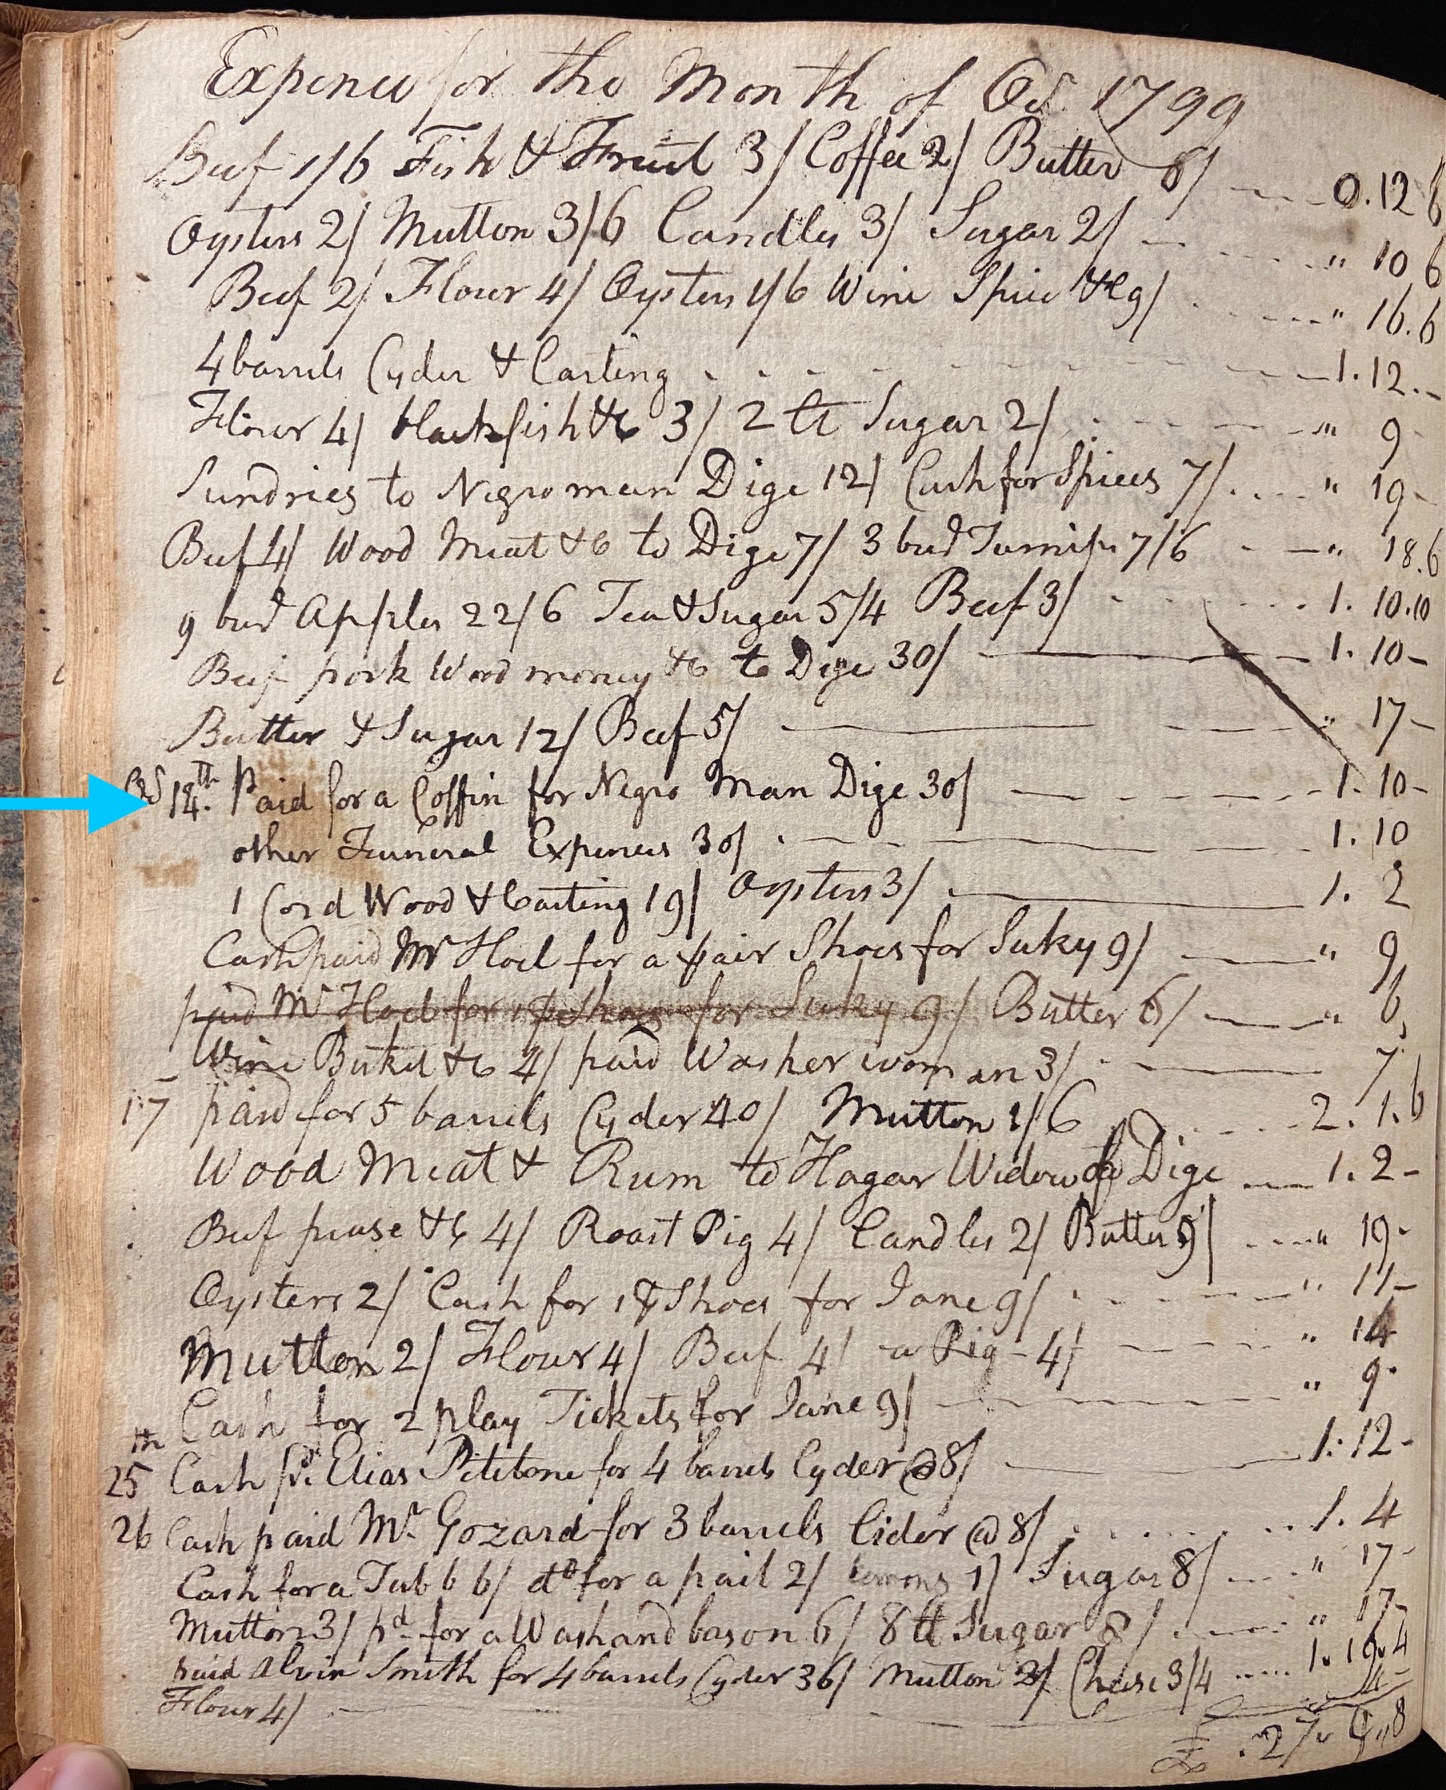 Expences for the Month of Oct. 1799
Beef 1/6 Fish & Fruit 3/ Coffee 2/ Butter 8/ 0.12 6
Oysters 2/ Mutton 3/6 Candles 3/ Sugar 2/ " 10 6
Beef 2/ Flour 4/ Oysters 1/6 Wine Spice &c 9/ " 16.6
4 barrels Cyder & Carting 1.12.-
Flour 4/ blackfish &c 3/ 2 lb Sugar 2/ " 9 -
Sundries to Negro man Dige 12/ Cash for Spices 7/ " 19 -
Beef 4/ Wood Meat &c to Dige 7/ 3 bud Turnips 7/6 " 18.6
9 bud Apples 22/6 Tea & Sugar 5/4 Beef 3/ 1. 10.10
Beef pork Wood money &c to Dige 30/ 1. 10 -
Butter & Sugar 12/ Beef 5/ " 17 -
Oct 14th. Paid for a Coffin for Negro Man Dige 30/ 1. 10 -
other Funeral Expences 30/ 1. 10
1 Cord Wood & Carting 19/ Oysters 3/ 1. 2
Cash paid Mr Hoel for a pair Shoes for Suky 9/ " 9
paid Mr Hoel for 1 pr Shoes for Suky 9/ Butter 6/ " 6
Wine &c 4/ paid Washer woman 3/ 7
17 paid for 5 barrels Cyder 40/ Mutton 1/6 2. 1. 6
Wood Meat & Rum to Hagar Widow of Dige 1. 2 -
Beef &c 4/ Roast Pig 4/ Candles 2/ Butter 9/ " 19 -
Oysters 2/ Cash for 1 pr Shoes for Jane 9/ " 11 -
Mutton 2/ Flour 4/ Beef 4/ a Pig - 4/ " 14
Cash for 2 play Tickets for Jane 9/ " 9 -
25th Cash pd. Elias Pitibone for 4 barrels Cyder @ 8/ 1. 12 -
26 Cash paid Mr. Gozard for 3 barrels Cider @ 8/ 1. 4
Cash for a Tub 6/ do for a pail 2/ 1/ Sugar 8/ " 17 -
Mutton 3/ pd for a Washand bason 6/ 8 lb Sugar 8/ " 17 -
paid Alvin Smith for 4 barrels Cyder 36/ Mutton Chese 3/4 1. 19. 4
Flour 4/ 4 -
£ 27